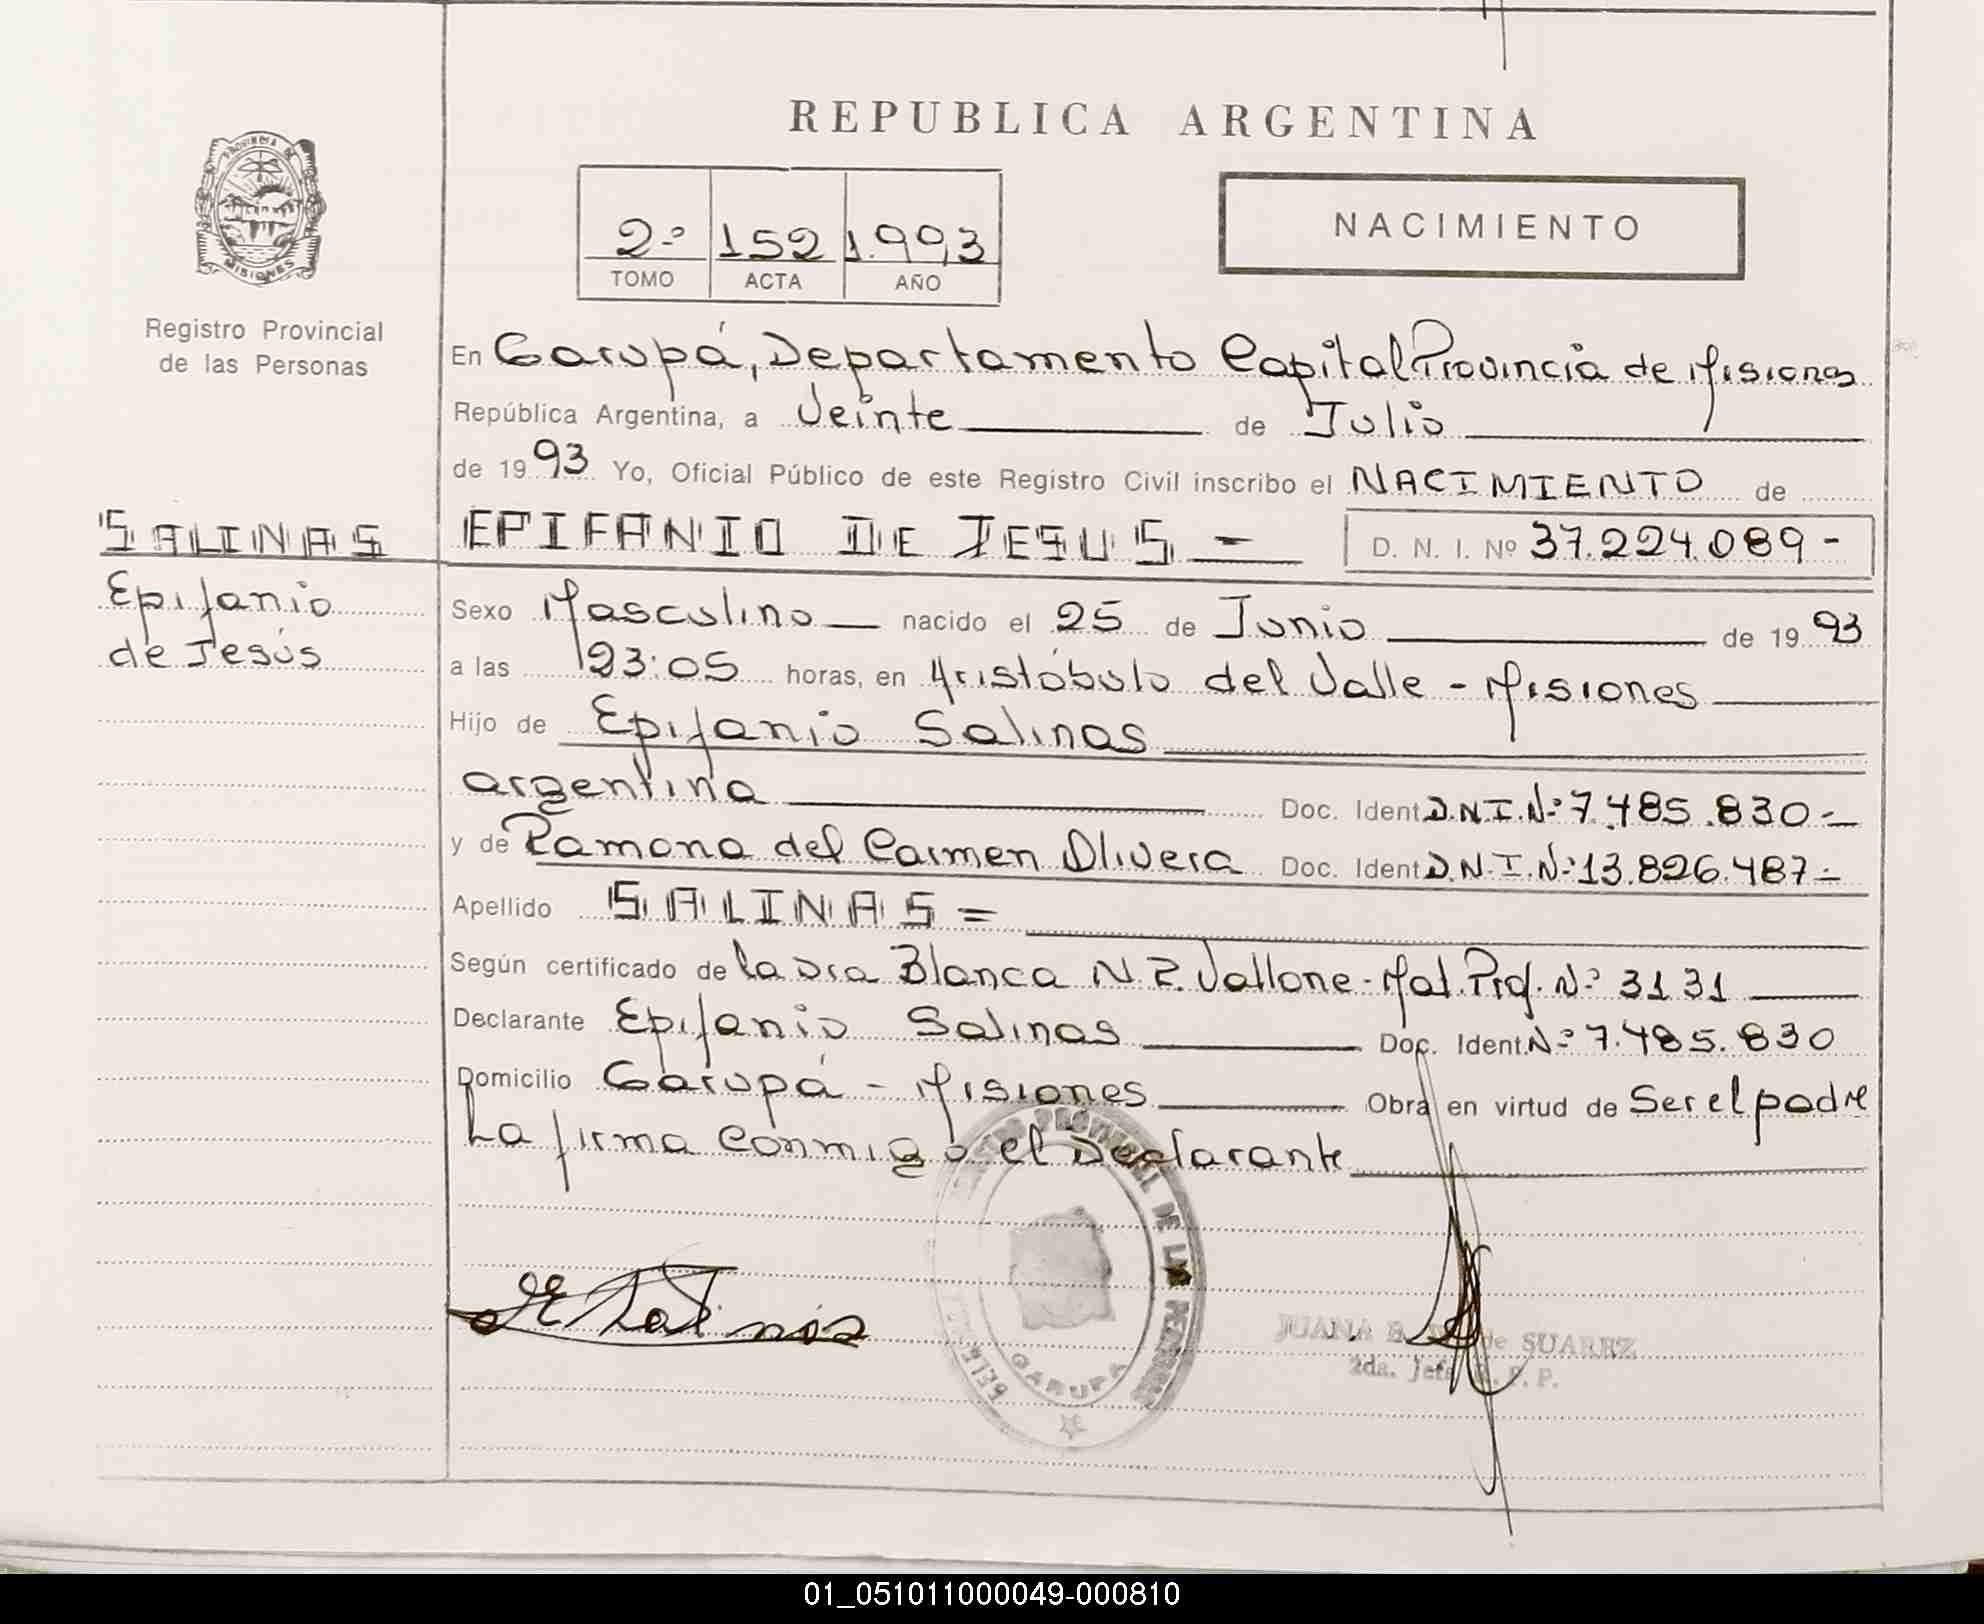 REPUBLICA ARGENTINA
PROVINCIA DE
MISIONES
2º 152 1.993
TOMO ACTA AÑO
NACIMIENTO
Registro Provincial
de las Personas
En Garupá, Departamento Capital Provincia de Misiones
República Argentina, a Veinte de Julio
de 1993 Yo, Oficial Público de este Registro Civil inscribo el NACIMIENTO de
SALINAS
EPIFANIO DE JESUS = D. N. I. Nº 37.224.089-
Epifanio
de Jesús
Sexo Masculino nacido el 25 de Junio de 1993
a las 23:05 horas, en Aristóbulo del Valle - Misiones
Hijo de Epifanio Salinas
argentina Doc. Ident D.N.I.Nº 7.485.830-
y de Ramona del Carmen Olivera Doc. Ident D.N.I.Nº 13.826.487-
Apellido SALINAS =
Según certificado de la Dra Blanca N.P. Vallone - Mat. Prof. Nº 3131
Declarante Epifanio Salinas Doc. Ident. Nº 7.485.830
Domicilio Garupá - Misiones Obra en virtud de Ser el padre
La firma conmigo el Declarante
PROVINCIAL DE LAS PERSONAS
GARUPA
JUANA B. de SUAREZ
2da. Jefe R. P. P.
01_051011000049-000810